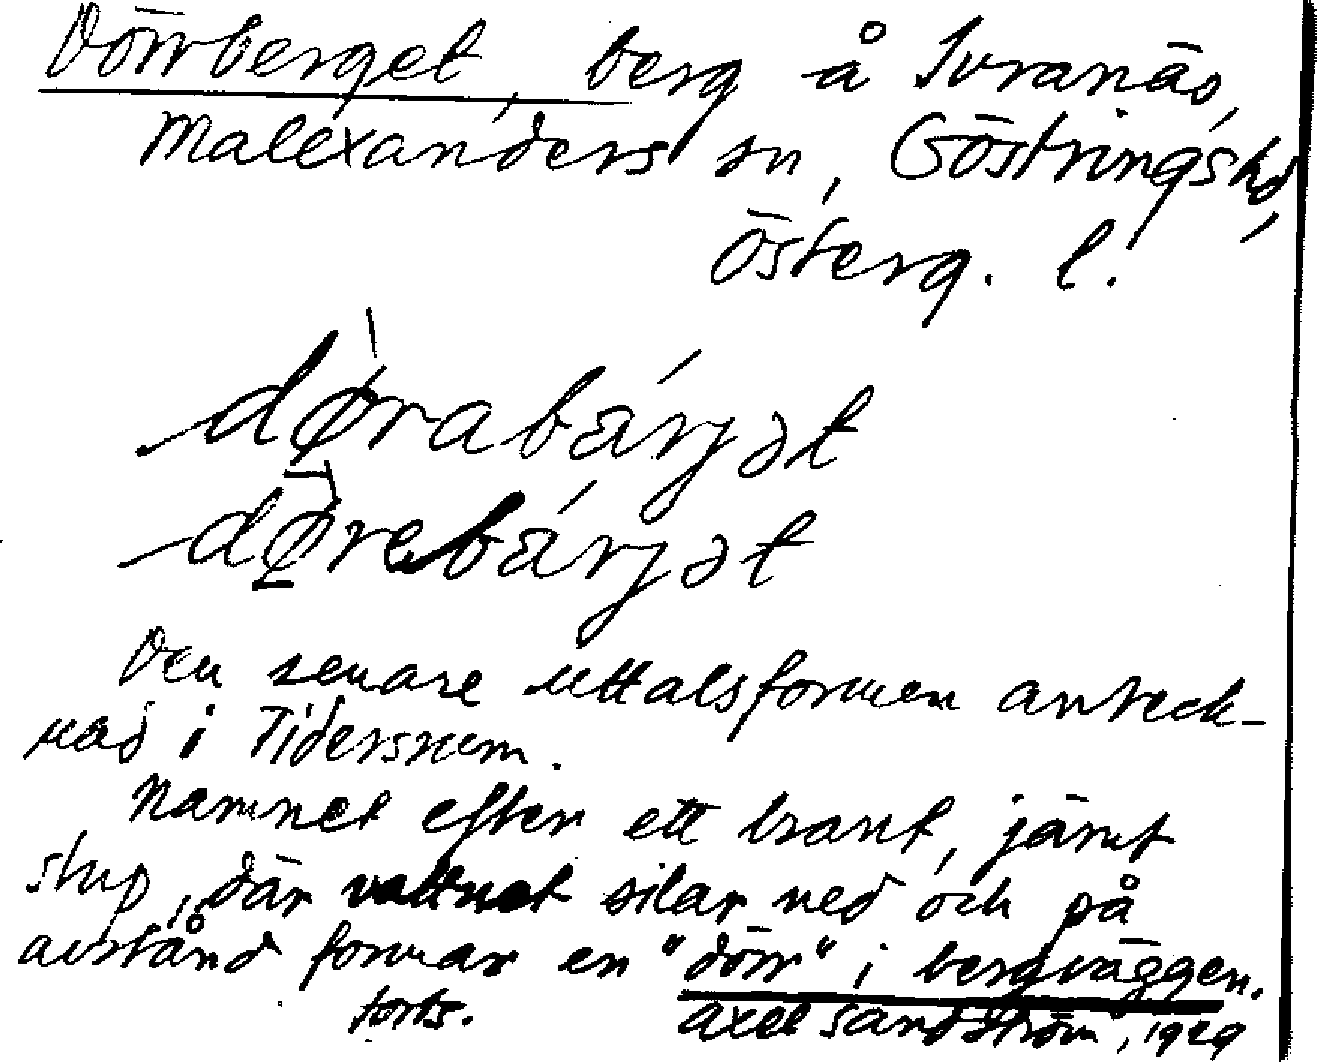 Dörrberget, berg å Ivranäs,
Malexanders sn, Göstrings hd,
Österg. l.
dørabárjət
dørebárjət
Den senare uttalsformen anteck-
nad i Tidersrum.
Namnet efter ett brant, jämt
stup, där vattnet silar ned och på
avstånd formar en "dörr" i bergväggen.
forts. Axel Sandström, 1929